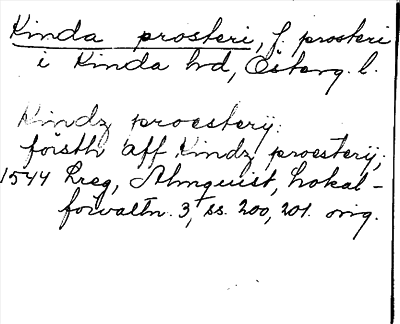 Kinda prosteri, f. prosteri
i Kinda hd, Österg. l.
Kindz proestery.
försth aff Kindz proesterij,
1544 Lreg, Almquist, Lokal-
förvaltn. 3, ss. 200, 201. orig.